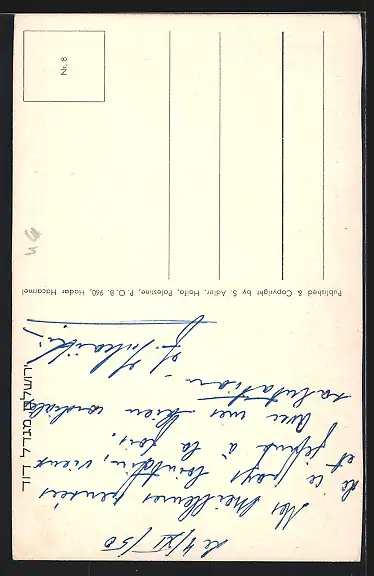 le 4/XI/50
Mes meilleures pensées
de ce pays lointain, vieux
et jeune à la fois.
Avec mes bien cordiales
salutations
ירושלים מגדל דוד
Published & Copyright by S. Adler, Haifa, Palestine, P. O. B. 960, Hadar Hacarmel
Nr. 8